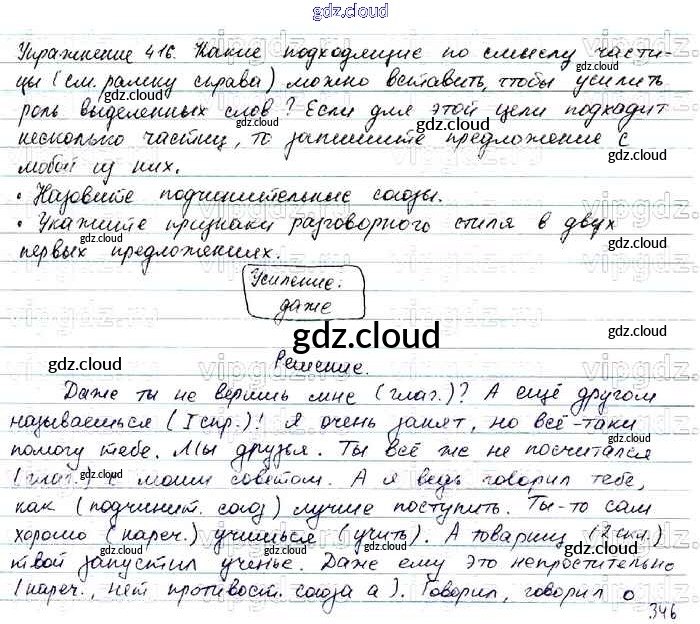 gdz.cloud
Упражнение 416. Какие подходящие по смыслу части-
цы (см. рамку справа) можно вставить, чтобы усилить
роль выделенных слов? Если для этой цели подходит
несколько частиц, то запишите предложение с
любой из них.
• Назовите подчинительные союзы.
• Укажите признаки разговорного стиля в двух
первых предложениях.
Усиление:
даже
gdz.cloud
Решение.
Даже ты не веришь мне (глаг.)? А ещё другом
называешься (I спр.)! Я очень занят, но всё-таки
помогу тебе. Мы друзья. Ты всё же не посчитался
(глаг.) с моим советом. А я ведь говорил тебе,
как (подчинит. союз) лучше поступить. Ты-то сам
хорошо (нареч.) учишься (учить). А товарищ (2 скл.)
твой запустил ученье. Даже ему это непростительно
(нареч., нет противост. союза а). Говорил, говорил о
346